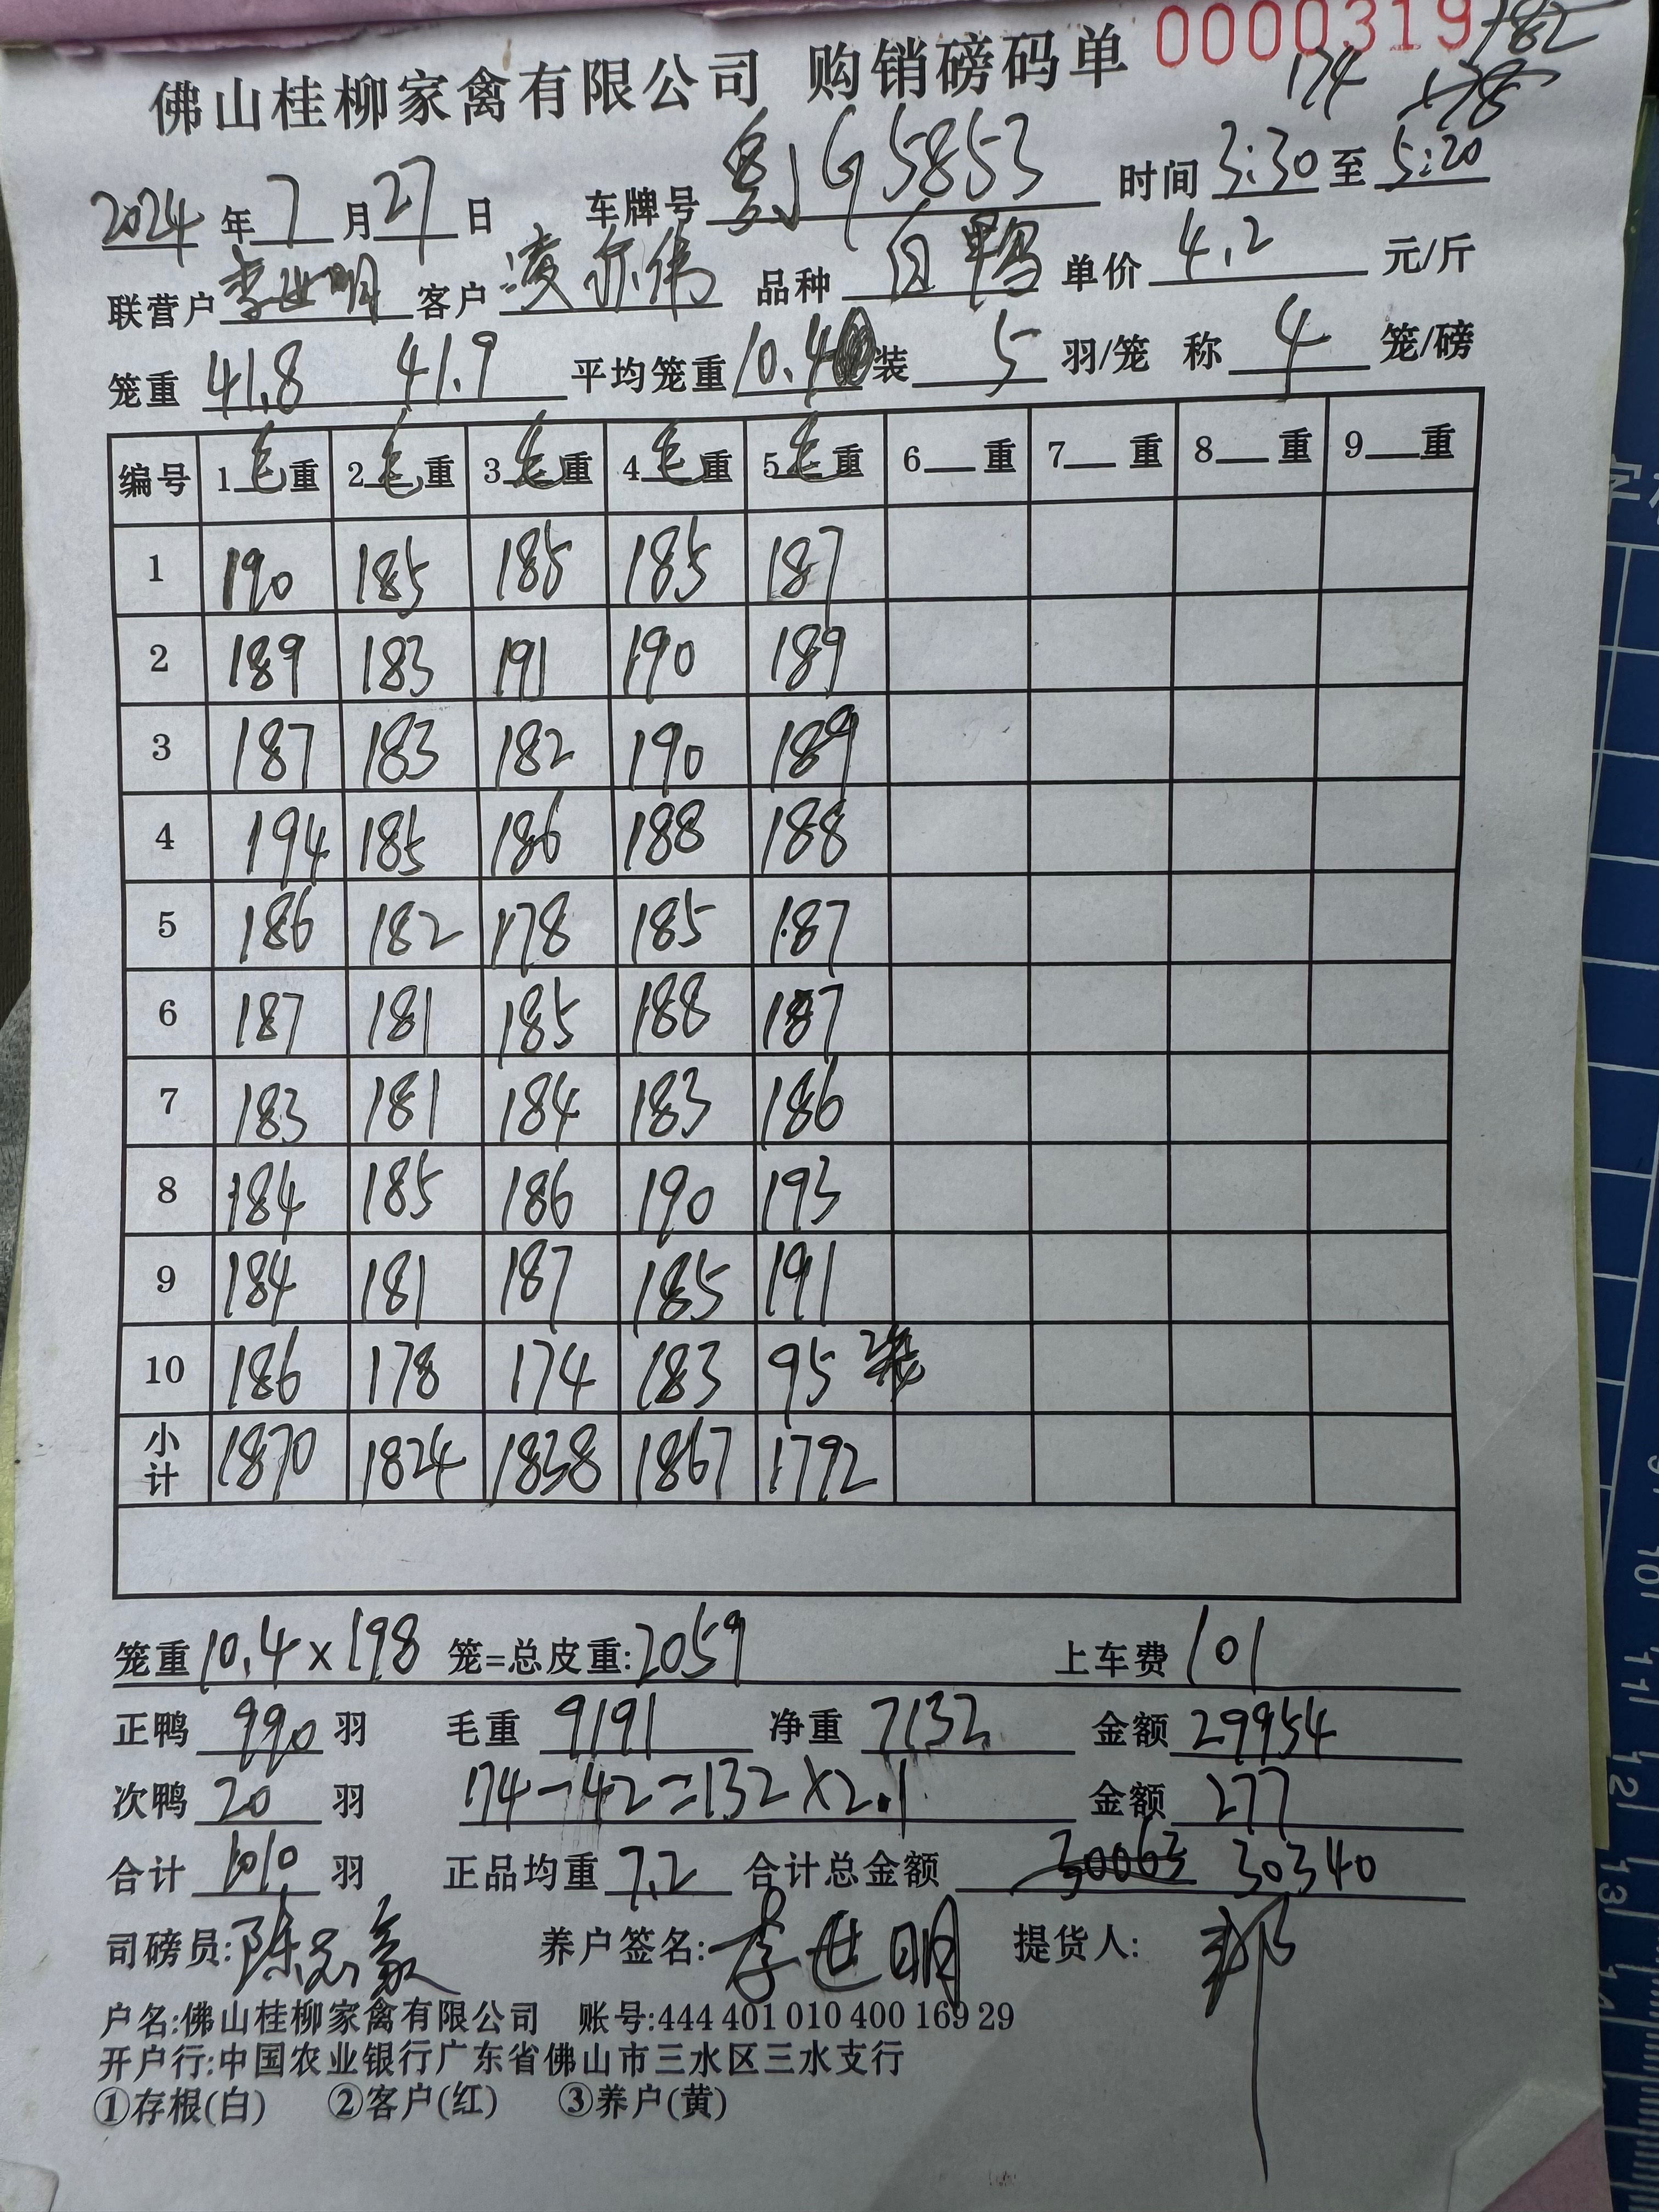 0000319 182
174 178
佛山桂柳家禽有限公司 购销磅码单
2024 年 7 月 27 日 车牌号 粤G5853 时间 3:30 至 5:20
联营户 李世明 客户 凌亦伟 品种 白鸭 单价 4.2 元/斤
笼重 41.8 41.9 平均笼重 10.4 装 5 羽/笼 称 4 笼/磅
编号 1毛重 2毛重 3毛重 4毛重 5毛重 6__重 7__重 8__重 9__重
1 190 185 185 185 187
2 189 183 191 190 189
3 187 183 182 190 189
4 194 185 186 188 188
5 186 182 178 185 187
6 187 181 185 188 187
7 183 181 184 183 186
8 184 185 186 190 193
9 184 181 187 185 191
10 186 178 174 183 95 2笼
小计 1870 1824 1838 1867 1792
笼重 10.4×198 笼=总皮重:2059 上车费 101
正鸭 990 羽 毛重 9191 净重 7132 金额 29954
次鸭 20 羽 174-42=132×2.1 金额 277
合计 1010 羽 正品均重 7.2 合计总金额 30340
司磅员:陈 养户签名:李世明 提货人:
户名:佛山桂柳家禽有限公司 账号:444 401 010 400 169 29
开户行:中国农业银行广东省佛山市三水区三水支行
①存根(白) ②客户(红) ③养户(黄)